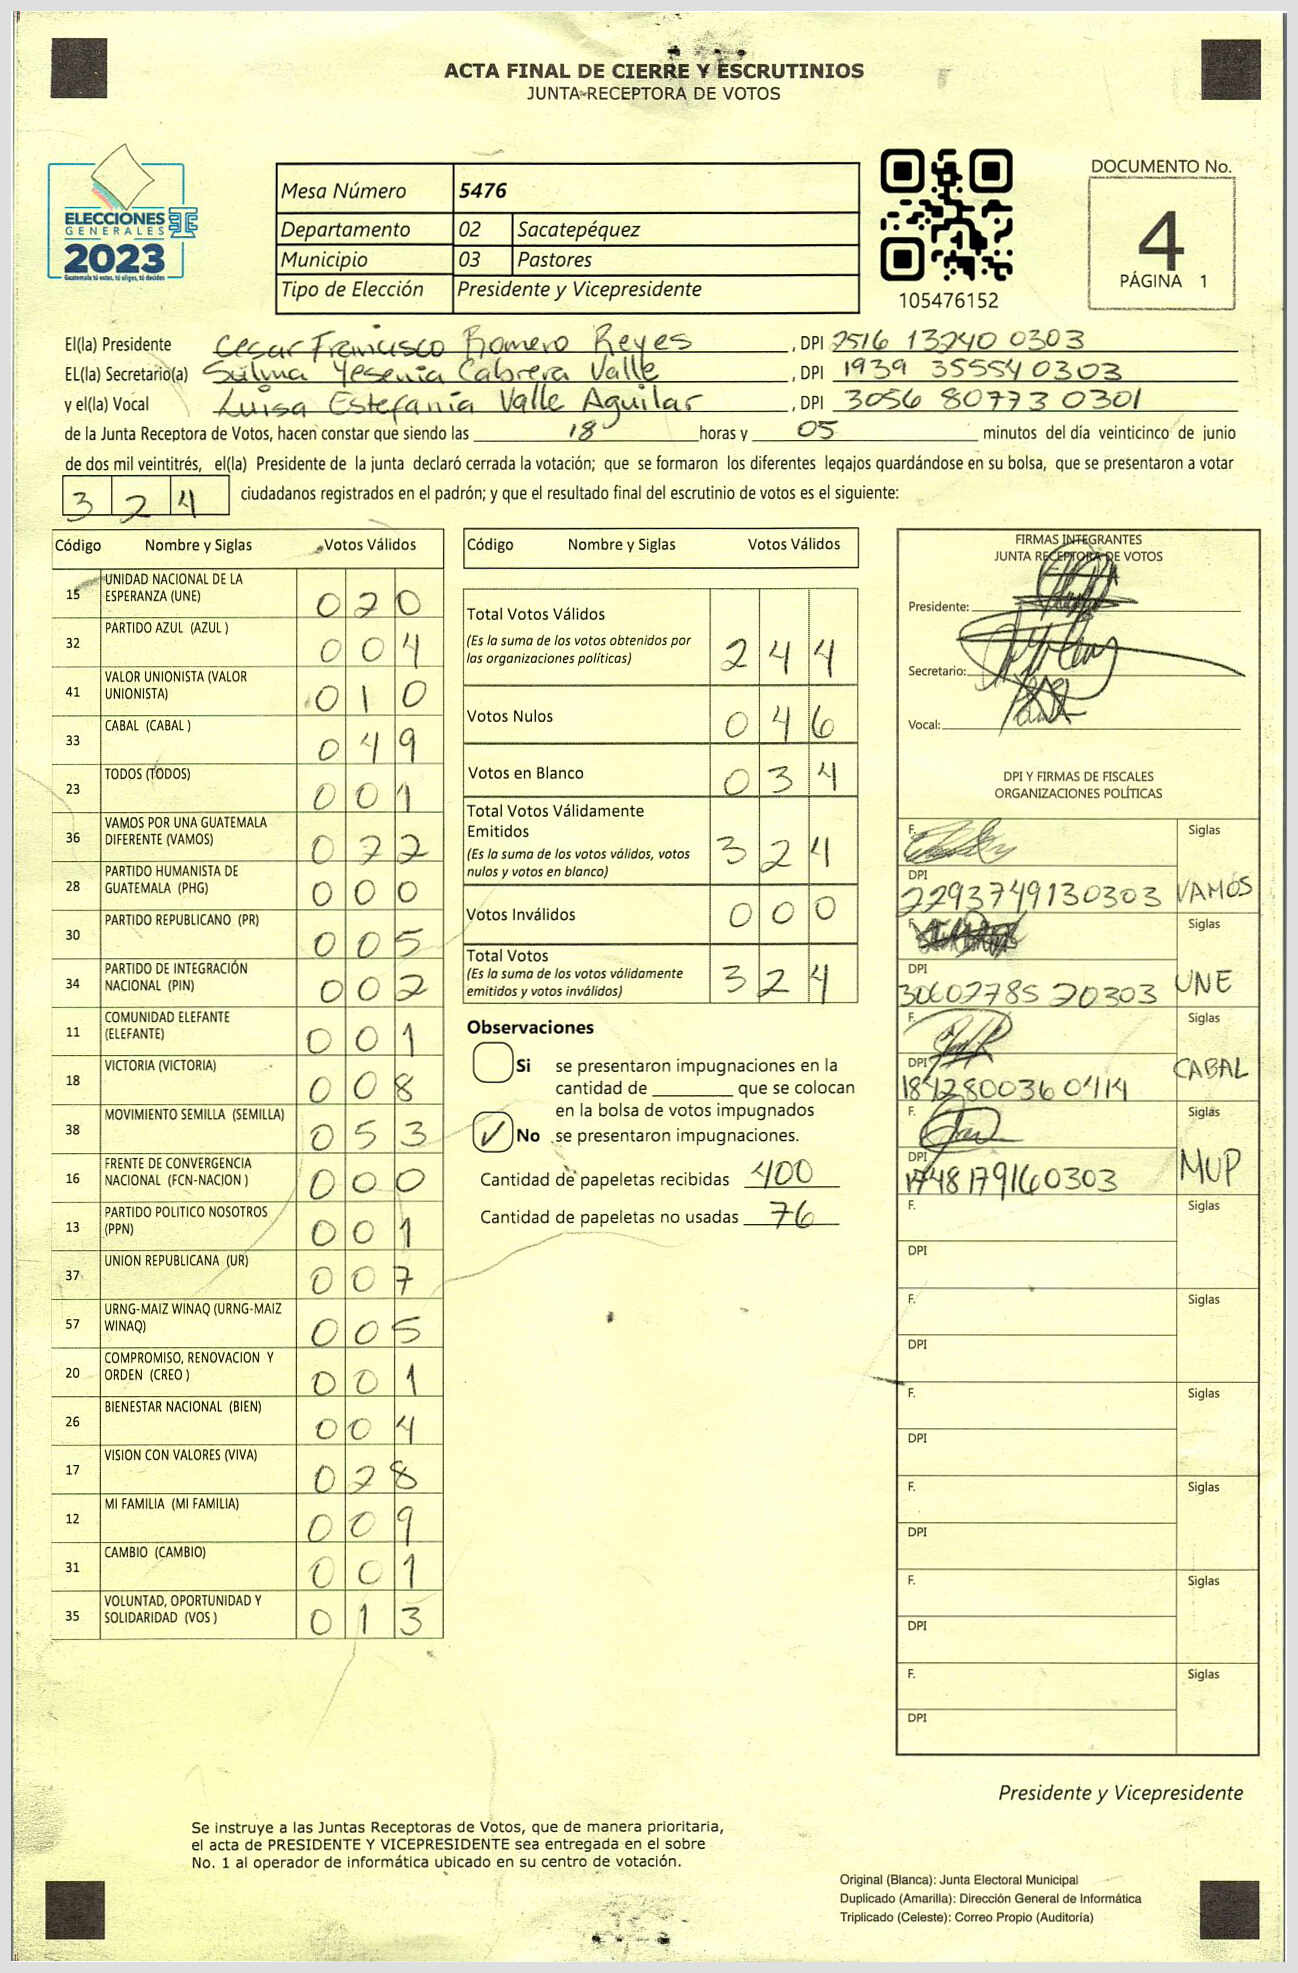 ACTA FINAL DE CIERRE Y ESCRUTINIOS
JUNTA RECEPTORA DE VOTOS
ELECCIONES
GENERALES
2023
Guatemala tú votas, tú eliges, tú decides
Mesa Número 5476
Departamento 02 Sacatepéquez
Municipio 03 Pastores
Tipo de Elección Presidente y Vicepresidente
105476152
DOCUMENTO No.
4
PÁGINA 1
El(la) Presidente Cesar Francisco Romero Reyes, DPI 2516 13240 0303
EL(la) Secretario(a) Sulma Yesenia Cabrera Valle, DPI 1939 35554 0303
y el(la) Vocal Luisa Estefanía Valle Aguilar, DPI 3056 80773 0301
de la Junta Receptora de Votos, hacen constar que siendo las 18 horas y 05 minutos del día veinticinco de junio
de dos mil veintitrés, el(la) Presidente de la junta declaró cerrada la votación; que se formaron los diferentes legajos guardándose en su bolsa, que se presentaron a votar
324 ciudadanos registrados en el padrón; y que el resultado final del escrutinio de votos es el siguiente:
Código Nombre y Siglas Votos Válidos
15 UNIDAD NACIONAL DE LA ESPERANZA (UNE) 020
32 PARTIDO AZUL (AZUL ) 004
41 VALOR UNIONISTA (VALOR UNIONISTA) 010
33 CABAL (CABAL ) 049
23 TODOS (TODOS) 001
36 VAMOS POR UNA GUATEMALA DIFERENTE (VAMOS) 022
28 PARTIDO HUMANISTA DE GUATEMALA (PHG) 000
30 PARTIDO REPUBLICANO (PR) 005
34 PARTIDO DE INTEGRACIÓN NACIONAL (PIN) 002
11 COMUNIDAD ELEFANTE (ELEFANTE) 001
18 VICTORIA (VICTORIA) 008
38 MOVIMIENTO SEMILLA (SEMILLA) 053
16 FRENTE DE CONVERGENCIA NACIONAL (FCN-NACION ) 000
13 PARTIDO POLITICO NOSOTROS (PPN) 001
37 UNION REPUBLICANA (UR) 007
57 URNG-MAIZ WINAQ (URNG-MAIZ WINAQ) 005
20 COMPROMISO, RENOVACION Y ORDEN (CREO ) 001
26 BIENESTAR NACIONAL (BIEN) 004
17 VISION CON VALORES (VIVA) 028
12 MI FAMILIA (MI FAMILIA) 009
31 CAMBIO (CAMBIO) 001
35 VOLUNTAD, OPORTUNIDAD Y SOLIDARIDAD (VOS ) 013
Código Nombre y Siglas Votos Válidos
Total Votos Válidos 244
(Es la suma de los votos obtenidos por
las organizaciones políticas)
Votos Nulos 046
Votos en Blanco 034
Total Votos Válidamente
Emitidos 324
(Es la suma de los votos válidos, votos
nulos y votos en blanco)
Votos Inválidos 000
Total Votos 324
(Es la suma de los votos válidamente
emitidos y votos inválidos)
Observaciones
Si se presentaron impugnaciones en la
cantidad de ________ que se colocan
en la bolsa de votos impugnados
✓ No se presentaron impugnaciones.
Cantidad de papeletas recibidas 400
Cantidad de papeletas no usadas 76
FIRMAS INTEGRANTES
JUNTA RECEPTORA DE VOTOS
Presidente:
Secretario:
Vocal:
DPI Y FIRMAS DE FISCALES
ORGANIZACIONES POLÍTICAS
F. Siglas
DPI 2293749130303 VAMOS
F. Siglas
DPI 3060278520303 UNE
F. Siglas
DPI 1842800360414 CABAL
F. Siglas
DPI 1748179160303 MUP
F. Siglas
DPI
F. Siglas
DPI
F. Siglas
DPI
F. Siglas
DPI
F. Siglas
DPI
F. Siglas
DPI
Presidente y Vicepresidente
Se instruye a las Juntas Receptoras de Votos, que de manera prioritaria,
el acta de PRESIDENTE Y VICEPRESIDENTE sea entregada en el sobre
No. 1 al operador de informática ubicado en su centro de votación.
Original (Blanca): Junta Electoral Municipal
Duplicado (Amarilla): Dirección General de Informática
Triplicado (Celeste): Correo Propio (Auditoría)